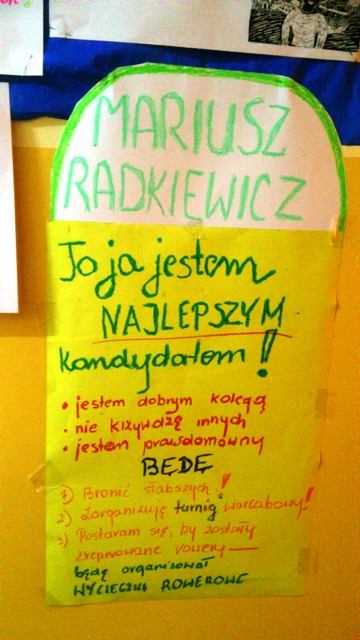 MARIUSZ
RADKIEWICZ
To ja jestem
NAJLEPSZYM
kandydatem!
• jestem dobrym kolegą
• nie krzywdzę innych
• jestem prawdomówny
BĘDĘ
1) Bronić słabszych!
2) Zorganizuję turniej warcabowy!
3) Postaram się, by zostały
zreperowane rowery—
będę organizował
WYCIECZKI ROWEROWE